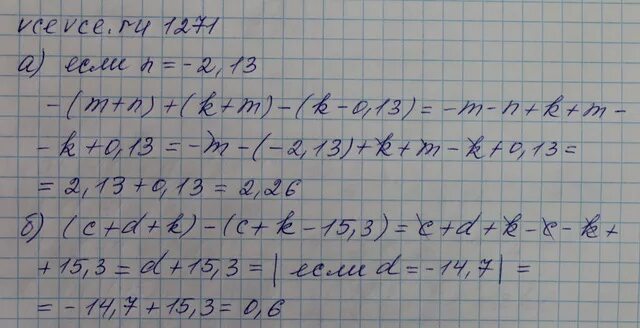 vcevce.ru 1271
а) если n = -2,13
-(m+n)+(k+m)-(k-0,13)= -m-n+k+m-
-k+0,13 = -m-(-2,13)+k+m-k+0,13=
= 2,13+0,13 = 2,26
б) (c+d+k)-(c+k-15,3)= c+d+k-c-k+
+15,3 = d+15,3 = | если d = -14,7 | =
= -14,7+15,3 = 0,6